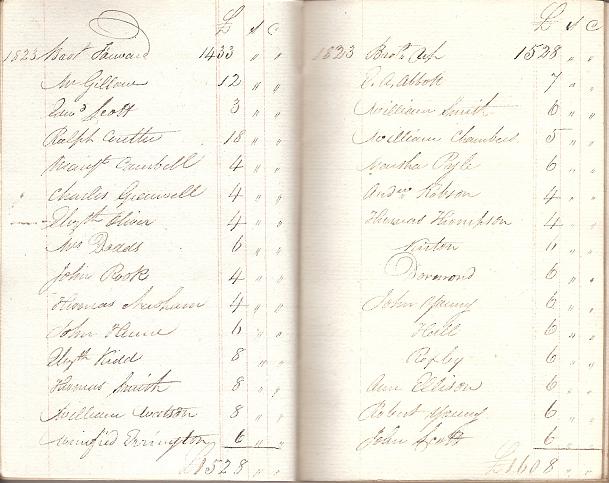 £ s
1823 Forward 1433 " "
Mr Gillow 12 " "
Edwd Scott 3 " "
Ralph 18 " "
Margt Campbell 4 " "
Charles Greenwell 4 " "
Elizth Oliver 4 " "
Mrs Dodds 6 " "
John Rook 4 " "
Thomas 4 " "
John 6 " "
Elizth Kidd 8 " "
Thomas Smith 8 " "
William Watson 8 " "
Winifred Errington 6 " "
£1528 " "
£ s
1823 Brot up 1528 " "
Abbott 7 " "
William Smith 6 " "
William Chambers 5 " "
Martha Pyle 6 " "
Andw Robson 4 " "
Thomas Thompson 4 " "
6 " "
Dormond 6 " "
John Young 6 " "
Hall 6 " "
Roxby 6 " "
Ann Ellison 6 " "
Robert Young 6 " "
John Scott 6 " "
£1608 " "